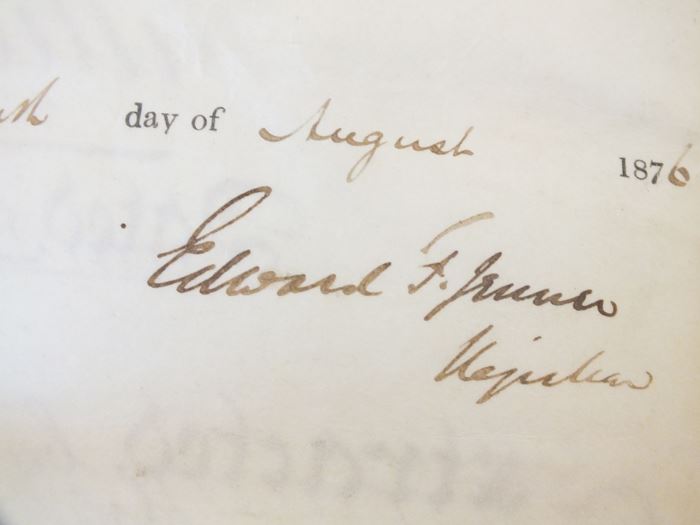 day of August 1876
Edward F. Jenner
Registrar